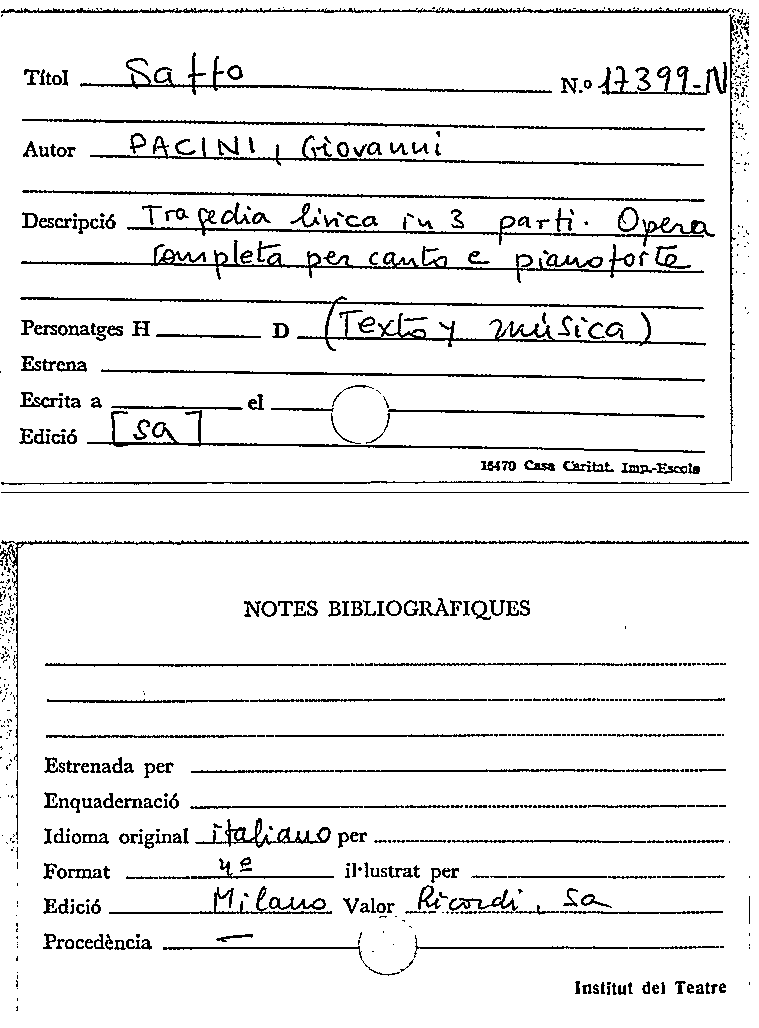 Títol Saffo N.º 17399-N
Autor PACINI, Giovanni
Descripció Tragedia lirica in 3 parti. Opera
completa per canto e pianoforte
Personatges H D (Texto y música)
Estrena
Escrita a el
Edició [sa]
15470 Casa Caritat. Imp.-Escola
NOTES BIBLIOGRÀFIQUES
Estrenada per
Enquadernació
Idioma original italiano per
Format 4º il·lustrat per
Edició Milano Valor Ricordi, sa
Procedència —
Institut del Teatre